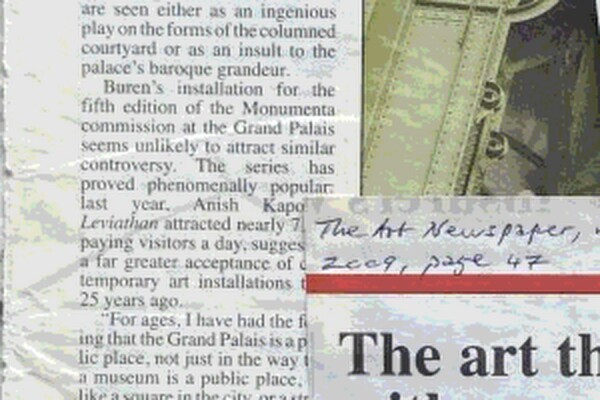 are seen either as an ingenious
play on the forms of the columned
courtyard or as an insult to the
palace's baroque grandeur.
Buren's installation for the
fifth edition of the Monumenta
commission at the Grand Palais
seems unlikely to attract similar
controversy. The series has
proved phenomenally popular:
last year, Anish Kapo
Leviathan attracted nearly 7
paying visitors a day, sugges
a far greater acceptance of c
temporary art installations t
25 years ago.
"For ages, I have had the fe
ing that the Grand Palais is a p
lic place, not just in the way t
a museum is a public place,
like a square in the city, or a str
The Art Newspaper,
2009, page 47
The art th